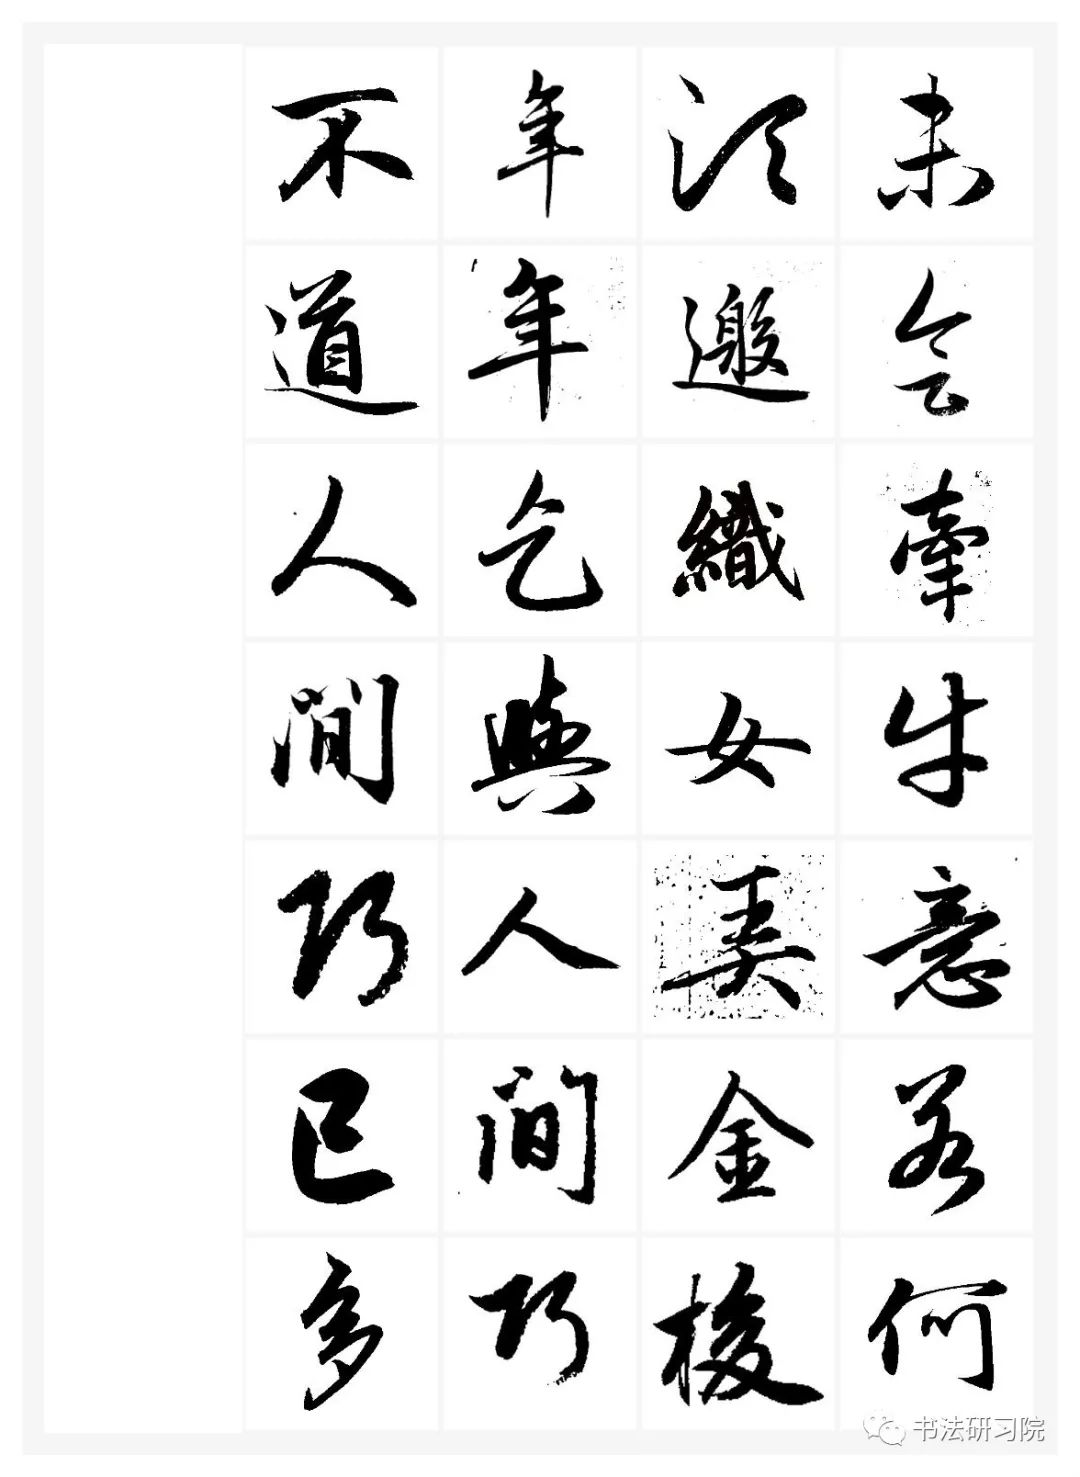 未会牽牛意若何
須邀織女弄金梭
年年乞與人間巧
不道人間巧已多
书法研习院